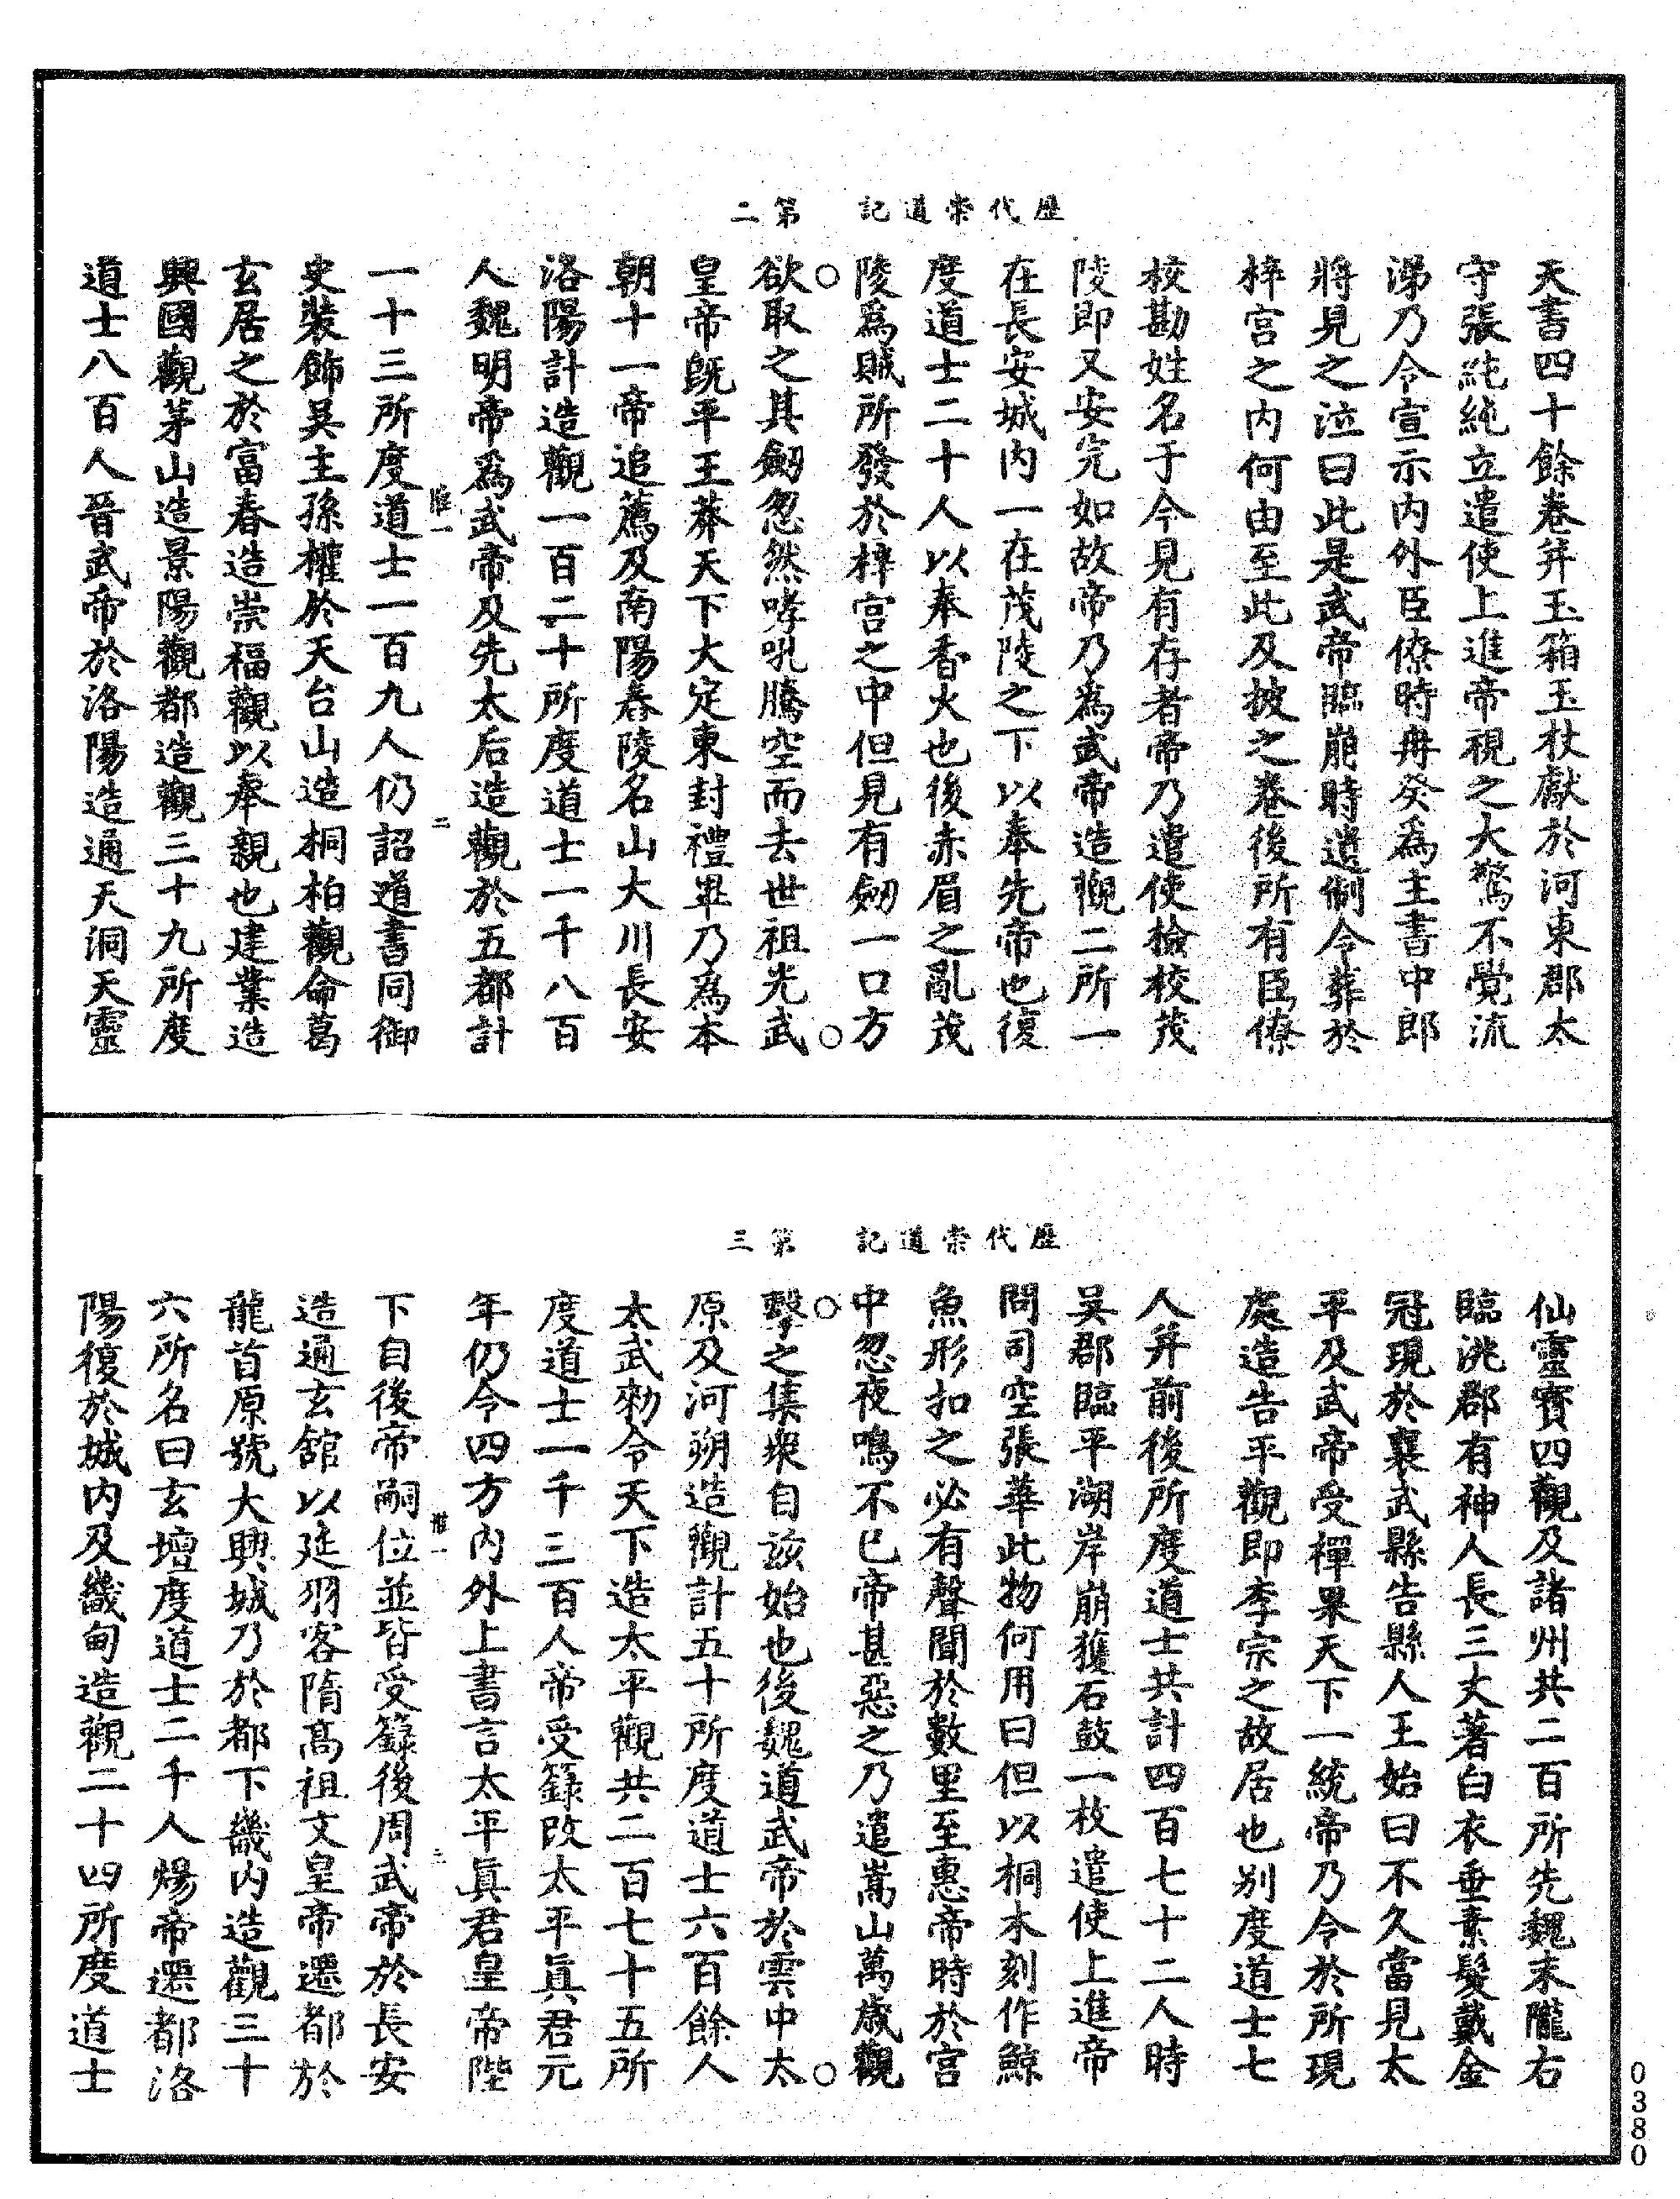 歷代崇道記　第二
天書四十餘卷并玉箱玉杖獻於河東郡太
守張純純立遣使上進帝視之大驚不覺流
涕乃令宣示內外臣僚時冉癸爲主書中郎
將見之泣曰此是武帝臨崩時遺制令葬於
梓宮之內何由至此及披之卷後所有臣僚
校勘姓名于今見有存者帝乃遣使檢校茂
陵即又安完如故帝乃為武帝造觀二所一
在長安城內一在茂陵之下以奉先帝也復
度道士二十人以奉香火也後赤眉之亂茂
陵爲賊所發於梓宮之中但見有劒一口方
欲取之其劒忽然哮吼騰空而去世祖光武
皇帝旣平王莽天下大定東封禮畢乃爲本
朝十一帝追薦及南陽舂陵名山大川長安
洛陽計造觀一百二十所度道士一千八百
人魏明帝爲武帝及先太后造觀於五都計
一十三所度道士一百九人仍詔道書同御
史裝飾吳主孫權於天台山造桐柏觀命葛
玄居之於富春造崇福觀以奉親也建業造
興國觀茅山造景陽觀都造觀三十九所度
道士八百人晉武帝於洛陽造通天洞天靈
二
歷代崇道記　第三
仙靈寶四觀及諸州共二百所先魏末隴右
臨洮郡有神人長三丈著白衣垂素髮戴金
冠現於襄武縣告縣人王始曰不久當見太
平及武帝受禪果天下一統帝乃令於所現
處造告平觀即李宗之故居也别度道士七
人并前後所度道士共計四百七十二人時
吳郡臨平湖岸崩獲石鼓一枚遣使上進帝
問司空張華此物何用曰但以桐木刻作鯨
魚形扣之必有聲聞於數里至惠帝時於宮
中忽夜鳴不已帝甚惡之乃遣嵩山萬歲觀
擊之集衆自該始也後魏道武帝於雲中太
原及河朔造觀計五十所度道士六百餘人
太武勑令天下造太平觀共二百七十五所
度道士一千三百人帝受籙改太平眞君元
年仍令四方內外上書言太平眞君皇帝陛
下自後帝嗣位並皆受籙後周武帝於長安
造通玄館以延羽客隋高祖文皇帝遷都於
龍首原號大興城乃於都下畿內造觀三十
六所名曰玄壇度道士二千人煬帝遷都洛
陽復於城內及畿甸造觀二十四所度道士
三
0380